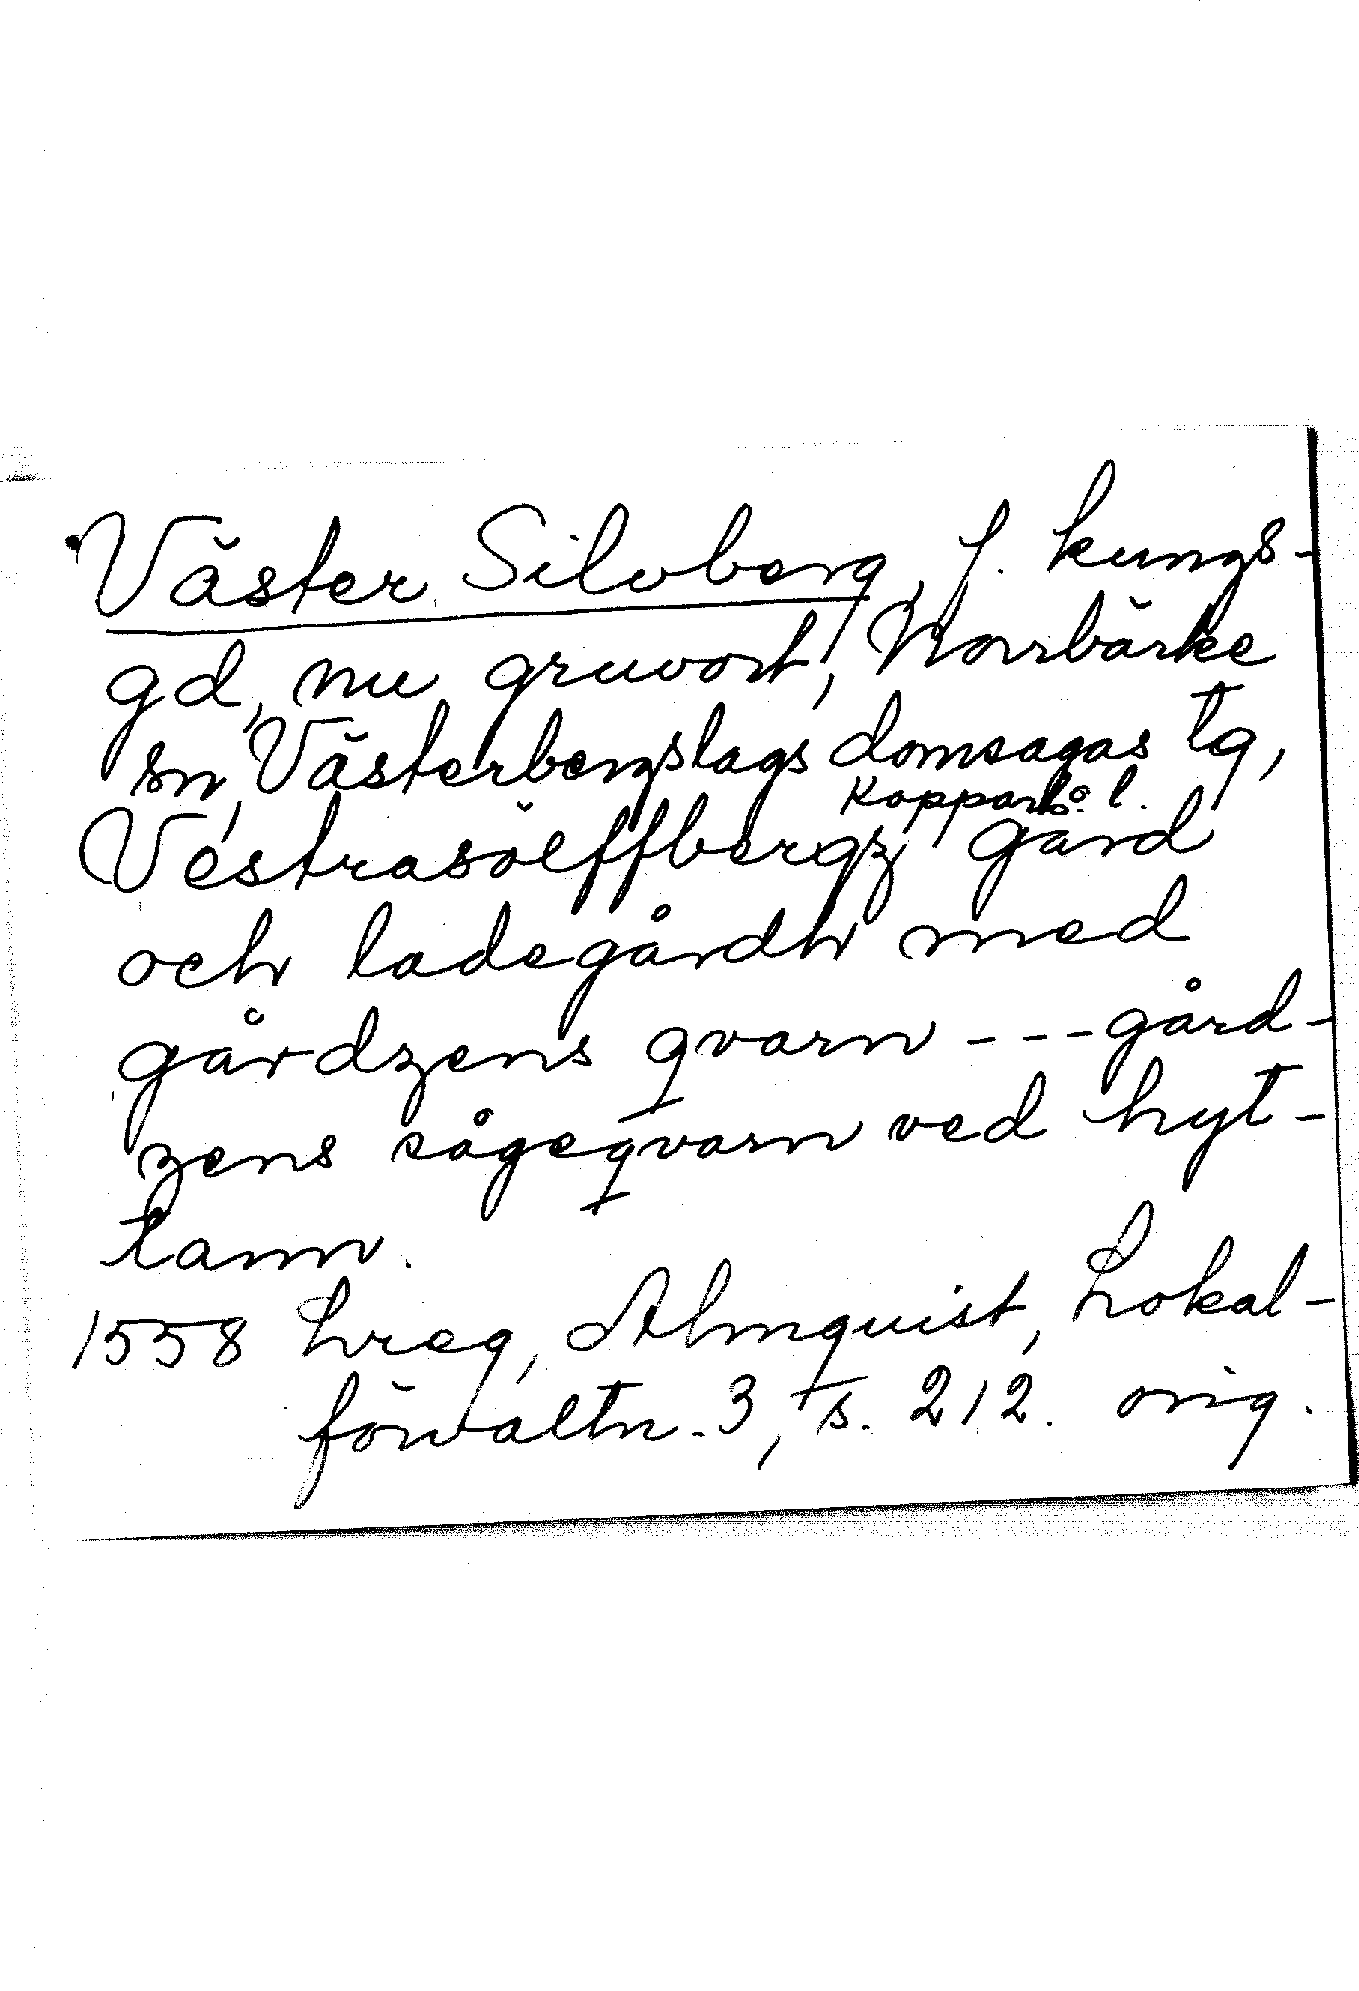 Väster Silvberg, f. kungs-
gd, nu gruvort, Norrbärke
sn, Västerbergslags domsagas tg,
Kopparb. l.
Vestrasölffbergz gård
och ladegårdh med
gårdzens qvarn --- gård-
zens sågeqvarn ved hyt-
tann.
1558 Lreg, Almquist, Lokal-
förvaltn. 3, s. 212. orig.